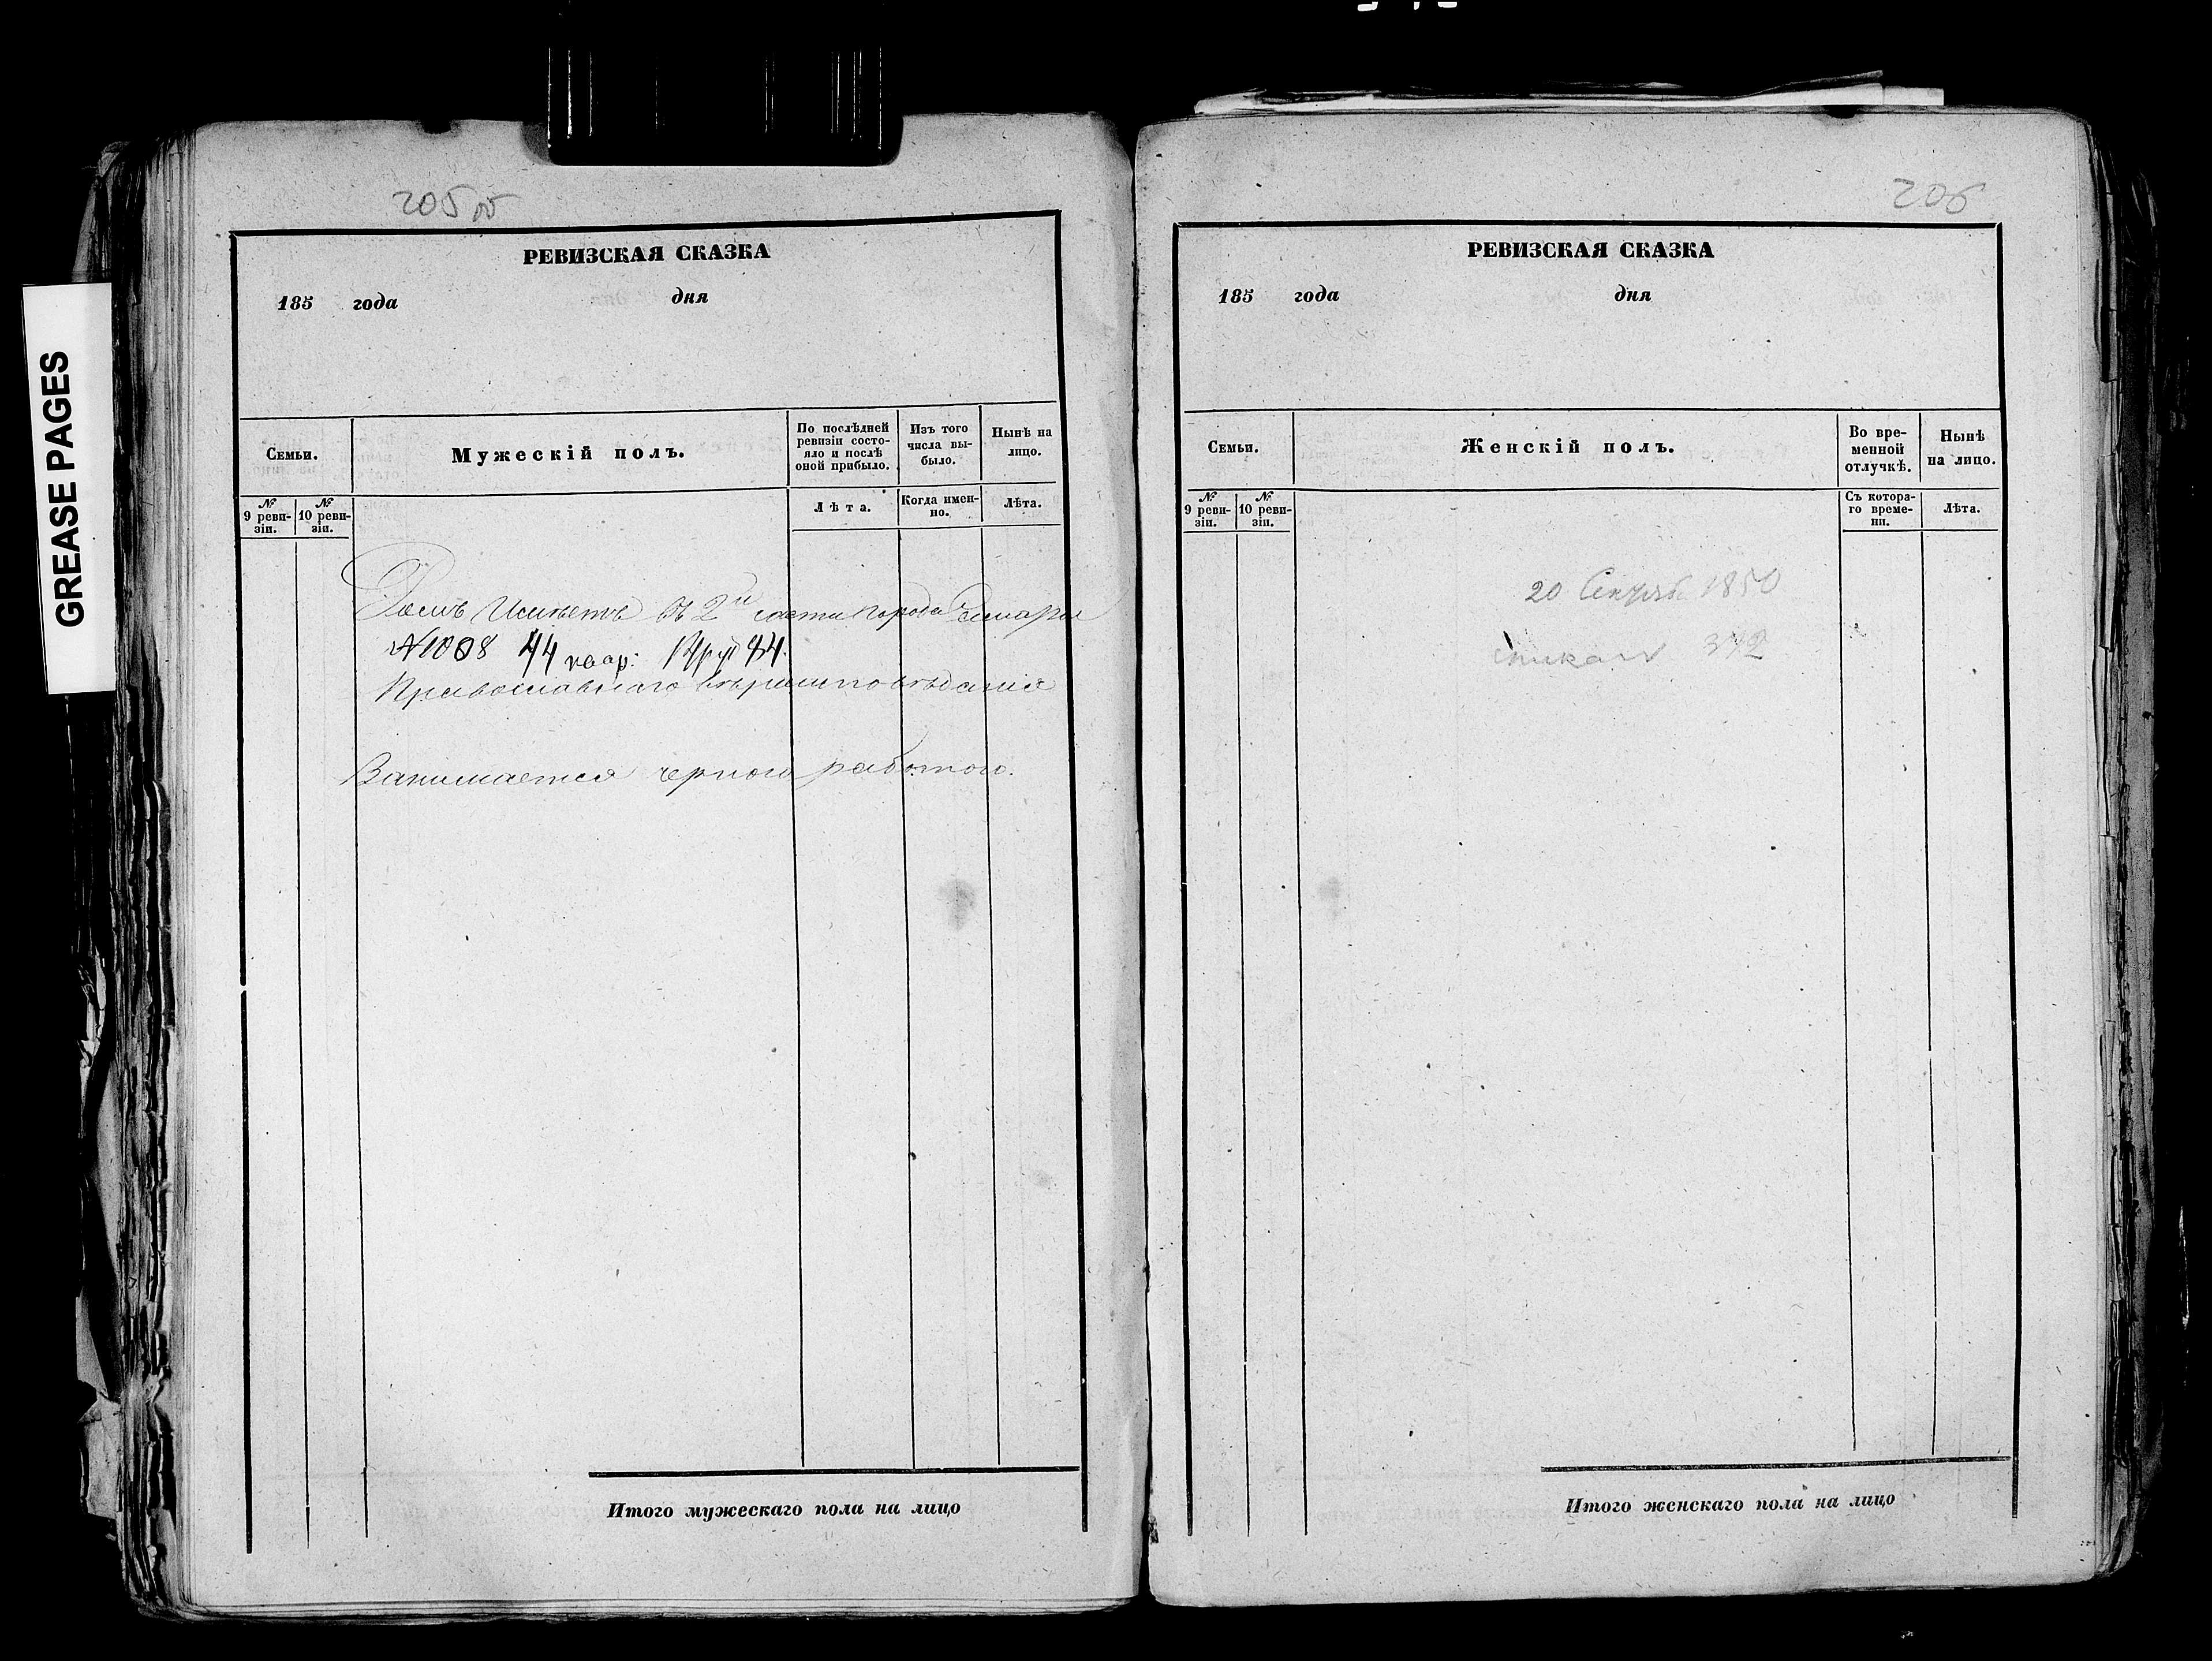 GREASE PAGES
205 об
РЕВИЗСКАЯ СКАЗКА
185 года дня
Семьи.
Мужескій полъ.
По послѣдней ревизіи состо-
яло и послѣ оной прибыло.
Изъ того числа вы-
было.
Нынѣ на лицо.
№ 9 реви-
зіи.
№ 10 реви-
зіи.
Лѣта.
Когда имен-
но.
Лѣта.
Домъ Имѣетъ въ 2й части города Самары
№ 1008 44 квар:
Православнаго вѣроисповѣданія
Занимается черною работою.
Итого мужескаго пола на лицо
206
РЕВИЗСКАЯ СКАЗКА
185 года дня
Семьи.
Женскій полъ.
Во вре-
менной
отлучкѣ.
Нынѣ
на лицо.
№ 9 реви-
зіи.
№ 10 реви-
зіи.
Съ котора-
го време-
ни.
Лѣта.
20 1850
372
Итого женскаго пола на лицо